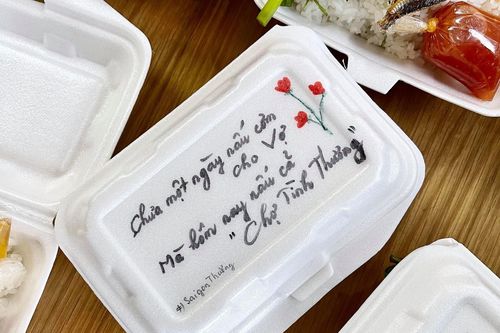 Chưa một ngày nấu cơm
cho Vợ
Mà hôm nay nấu cả
" Chợ Tình Thương "
#SaigonThương